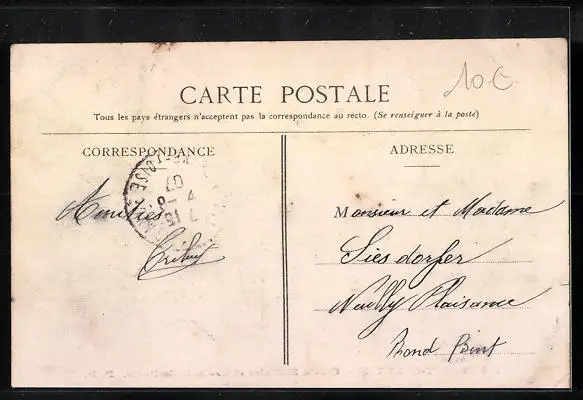 10 €
CARTE POSTALE
Tous les pays étrangers n'acceptent pas la correspondance au recto. (Se renseigner à la poste)
CORRESPONDANCE
ADRESSE
Amitiés
Monsieur et Madame
Siesdorfer
Neuilly Plaisance
Rond Point